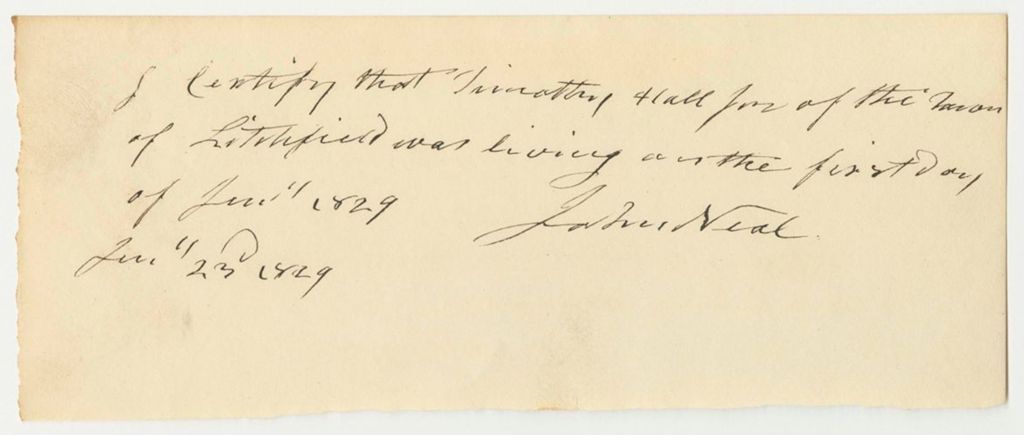 I Certify that Timothy Hall Jnr of the Town
of Litchfield was living on the first Day
of Jan" 1829
John Neal.
Jan" 23d 1829